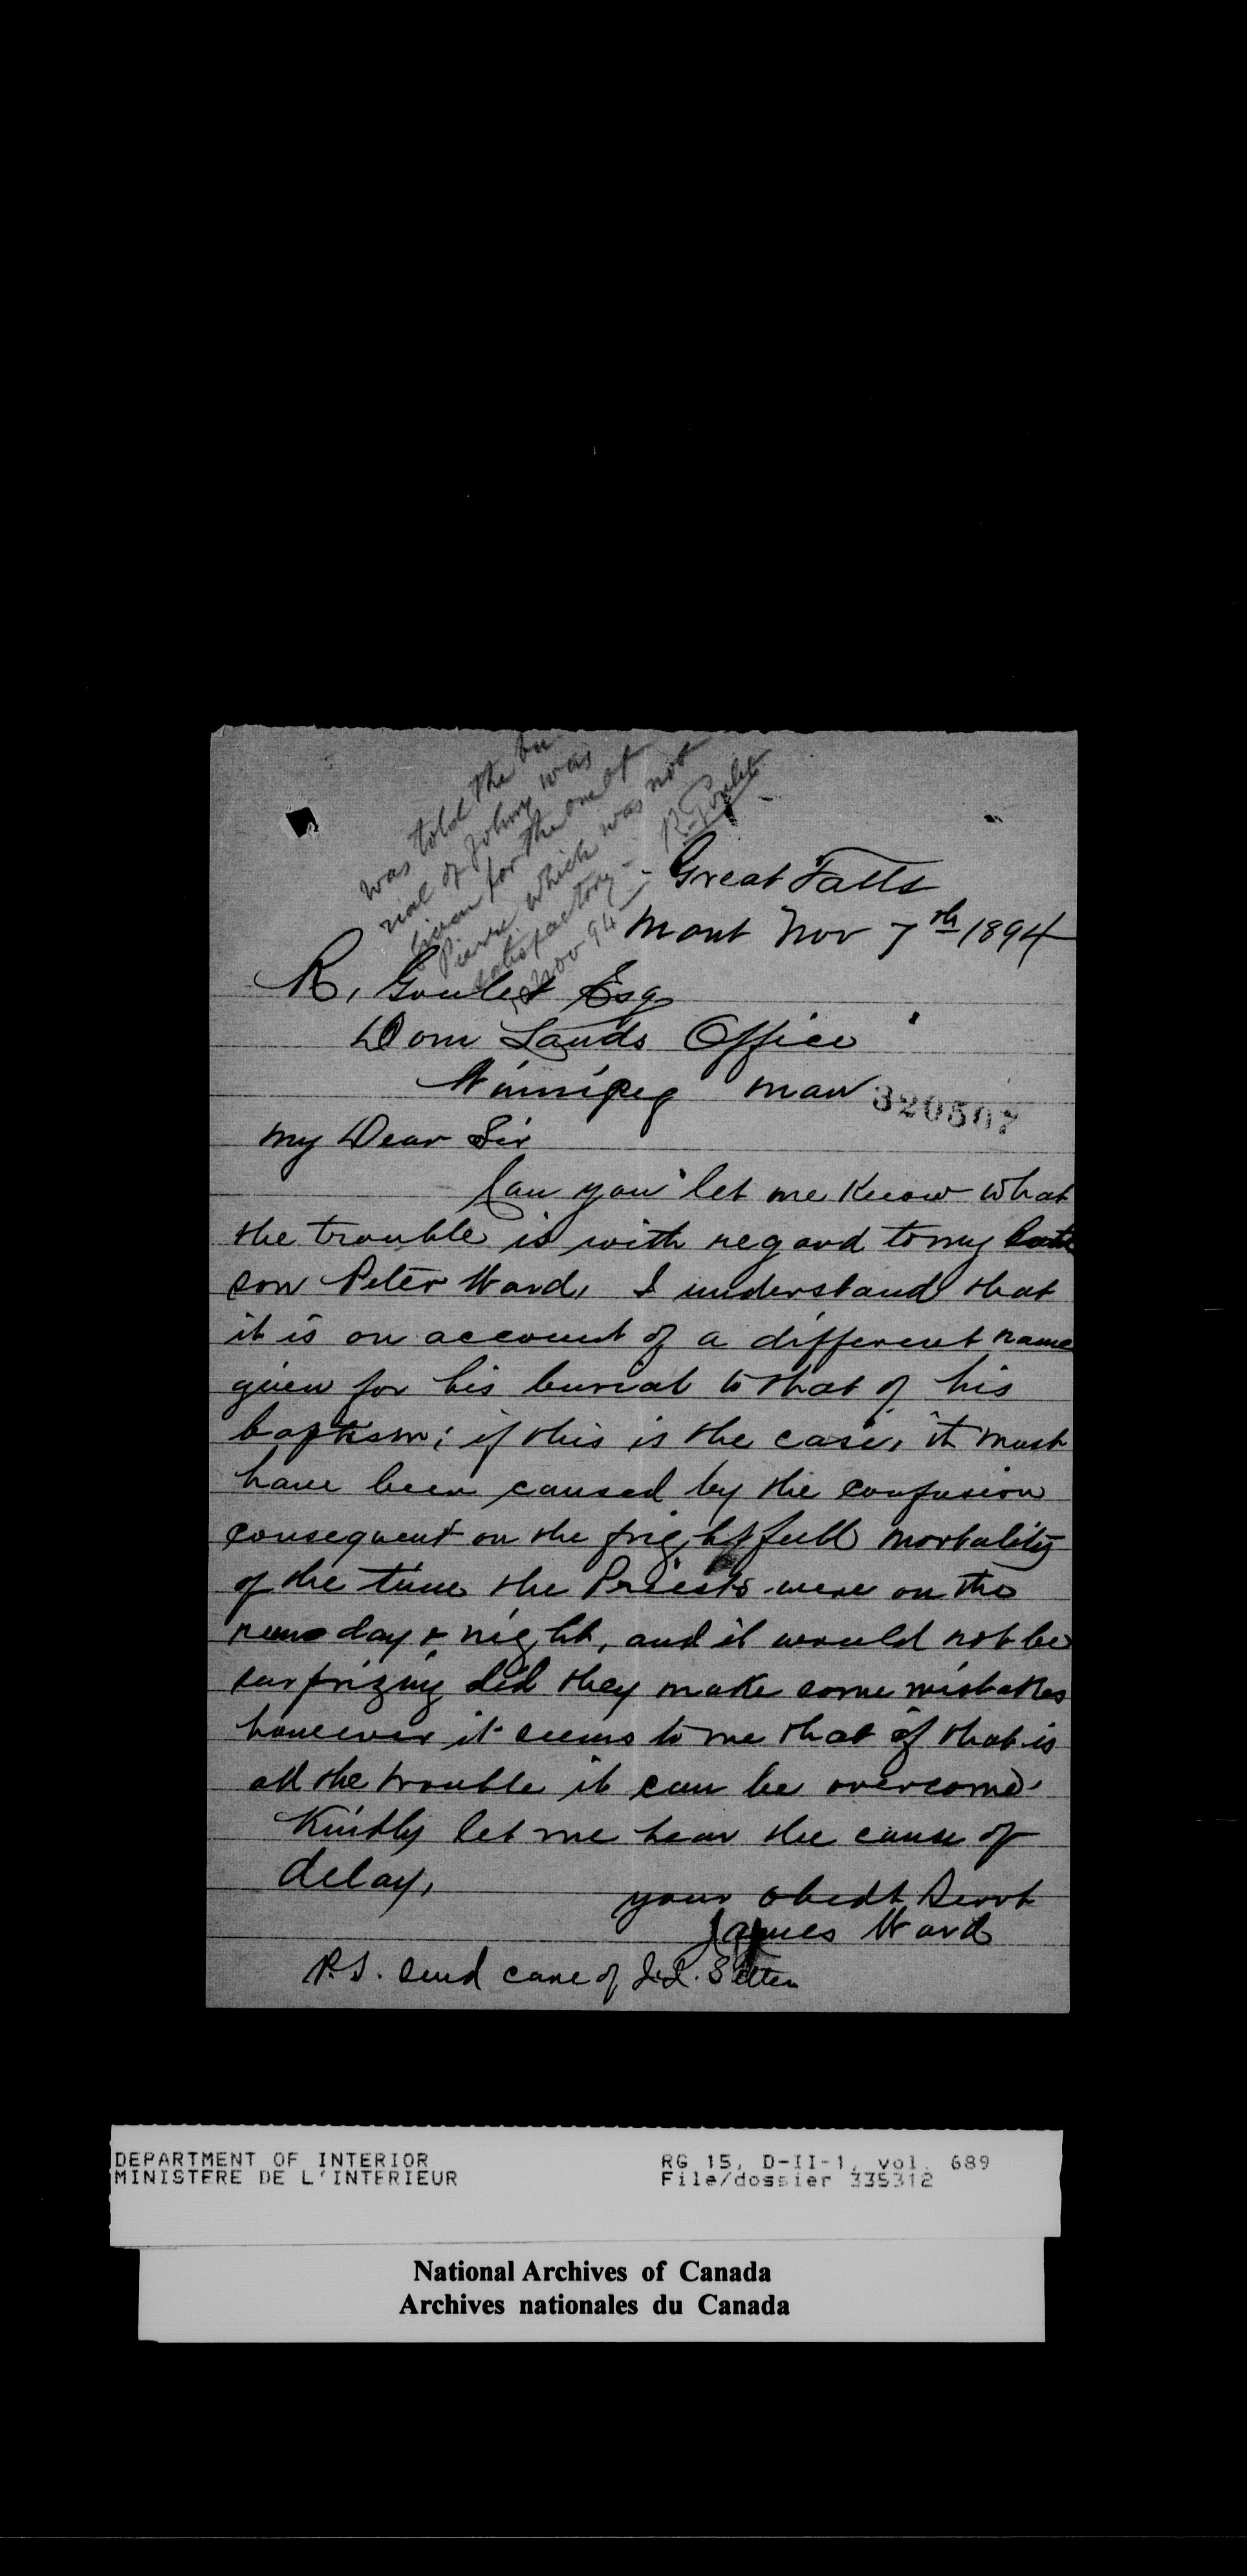 was told the bu
rial of Johny was
given for the one of
Pierre which was not
satisfactory -
Nov 94 - R. Goulet
Great Falls
Mont Nov 7th 1894
R, Goulet Esq
Dom Lands Office
Winnipeg Man
320507
My Dear Sir
Can you let me know what
the trouble is with regard to my late
son Peter Ward, I understand that
it is on account of a different name
given for his burial to that of his
baptism; if this is the case, it must
have been caused by the confusion
consequent on the frightfull mortality
of the time the Priests were on the
run day & night, and it would not be
surprizing did they make some mistakes
however it seems to me that if that is
all the trouble it can be overcome.
Kindly let me hear the cause of
delay,
your obedt Servt
James Ward
P.S. send care of
DEPARTMENT OF INTERIOR
MINISTERE DE L'INTERIEUR
RG 15, D-II-1, vol. 689
File/dossier 335312
National Archives of Canada
Archives nationales du Canada